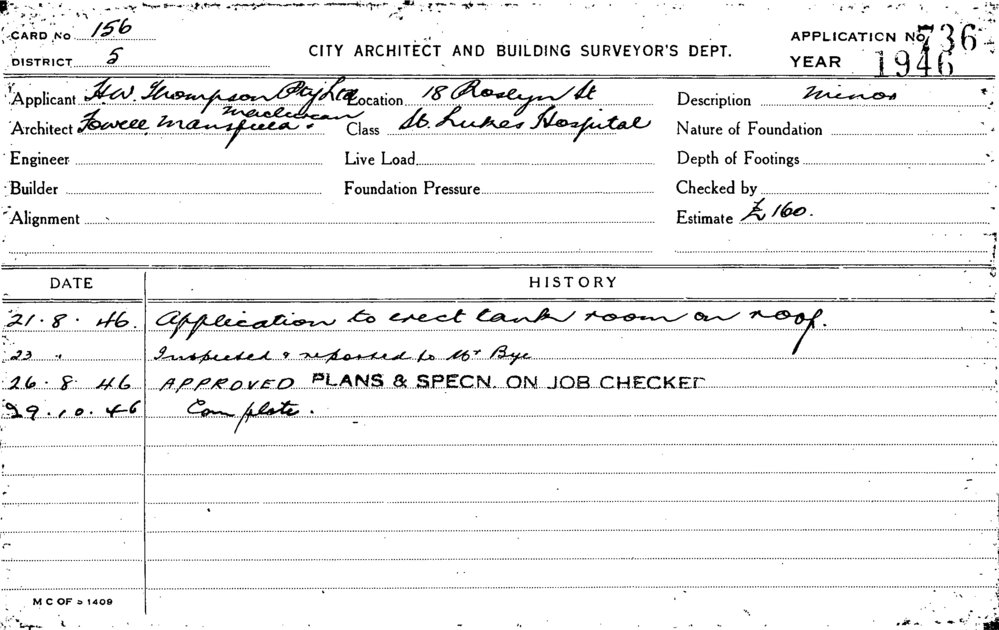 CARD No 156
APPLICATION No 736
DISTRICT 5
CITY ARCHITECT AND BUILDING SURVEYOR'S DEPT.
YEAR 1946
Applicant H.W. Thompson Pty Ltd Location 18 Roslyn St Description Minor
Architect Fowell Mansfield Maclurcan. Class St. Lukes Hospital Nature of Foundation
Engineer Live Load Depth of Footings
Builder Foundation Pressure Checked by
Alignment Estimate £160.
DATE HISTORY
21.8.46. Application to erect tank room on roof.
23 " Inspected & reported to Mr Bye
26.8.46 APPROVED PLANS & SPECN. ON JOB CHECKED
29.10.46 Complete.
M C OF S 1409